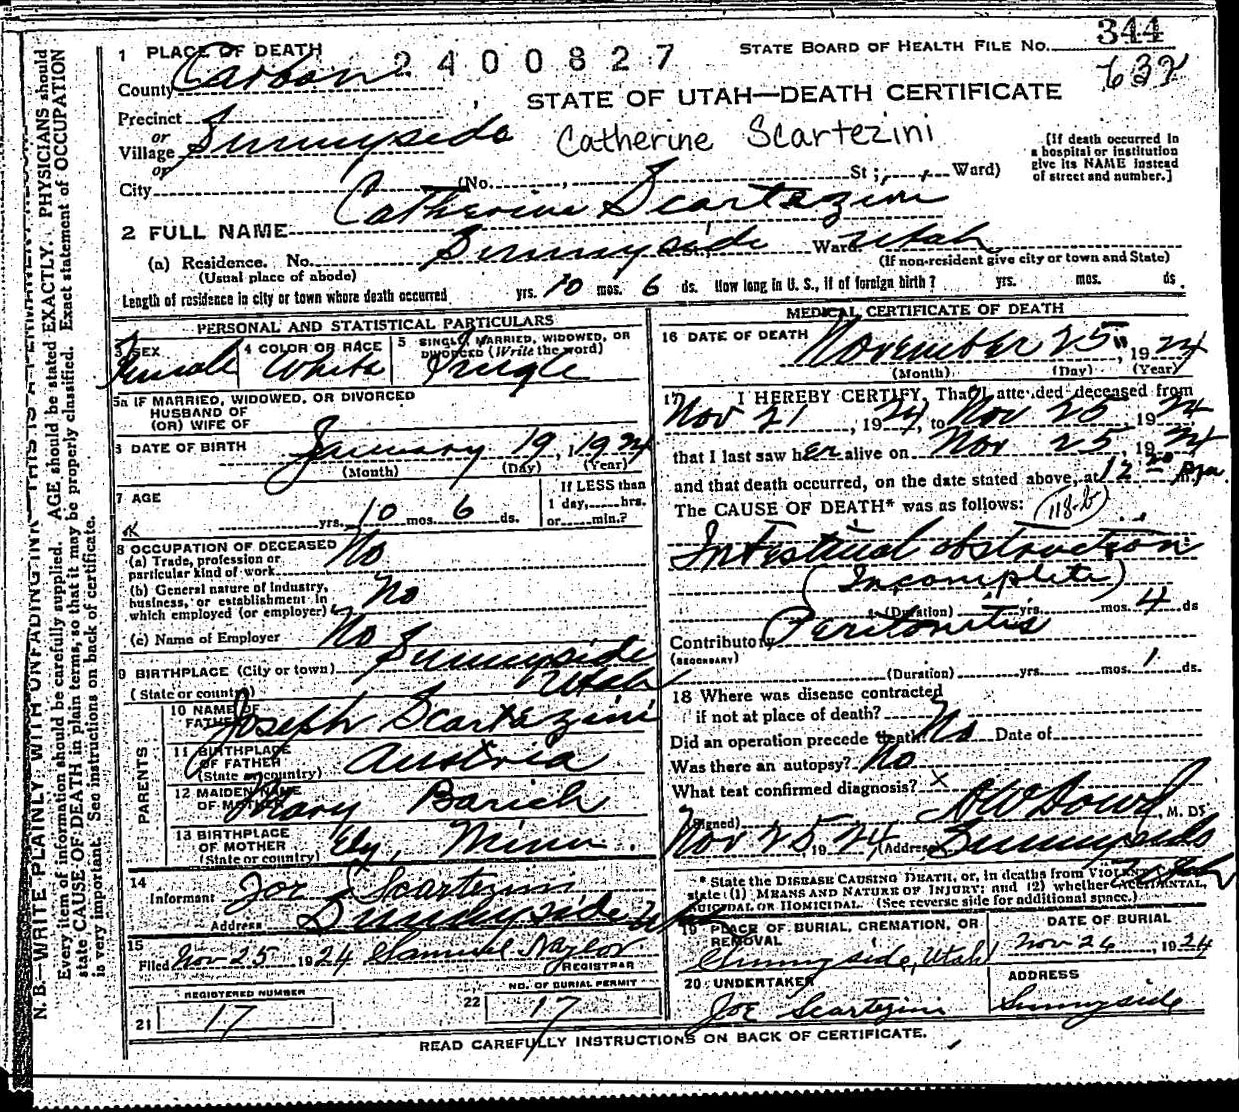 344
1 PLACE OF DEATH 2400827 STATE BOARD OF HEALTH FILE No.
County Carbon 632
STATE OF UTAH—DEATH CERTIFICATE
Precinct
or
Village Sunnyside Catherine Scartezini
or
City (No. St ; Ward)
[If death occurred in
a hospital or institution
give its NAME instead
of street and number.]
2 FULL NAME Catherine Scartezini
(a) Residence. No. Sunnyside, Ward Utah
(Usual place of abode) (If non-resident give city or town and State)
Length of residence in city or town where death occurred yrs. 10 mos. 6 ds. How long in U. S., if of foreign birth? yrs. mos. ds.
PERSONAL AND STATISTICAL PARTICULARS
3 SEX Female 4 COLOR OR RACE White 5 SINGLE, MARRIED, WIDOWED, OR
DIVORCED (Write the word) Single
5a IF MARRIED, WIDOWED, OR DIVORCED
HUSBAND OF
(OR) WIFE OF
DATE OF BIRTH January 19, 1924
(Month) (Day) (Year)
7 AGE yrs. 10 mos. 6 ds.
If LESS than
1 day, hrs.
or min.?
8 OCCUPATION OF DECEASED
(a) Trade, profession or
particular kind of work No
(b) General nature of Industry,
business, or establishment in
which employed (or employer) No
(c) Name of Employer No
9 BIRTHPLACE (City or town) Sunnyside
(State or country) Utah
PARENTS
10 NAME OF
FATHER Joseph Scartezini
11 BIRTHPLACE
OF FATHER
(State or country) Austria
12 MAIDEN NAME
OF MOTHER Mary Barich
13 BIRTHPLACE
OF MOTHER
(State or country) Ely, Minn.
14
Informant Joe Scartezini
Address Sunnyside Utah
15
Filed Nov 25 1924 Samuel Naylor
REGISTRAR
REGISTERED NUMBER
21 17
NO. OF BURIAL PERMIT
22 17
MEDICAL CERTIFICATE OF DEATH
16 DATE OF DEATH November 25, 1924
(Month) (Day) (Year)
17 I HEREBY CERTIFY, That I attended deceased from
Nov 21, 1924, to Nov 25 1924
that I last saw her alive on Nov 25, 1924
and that death occurred, on the date stated above, at 12 30 Pm.
The CAUSE OF DEATH* was as follows: 118-b
Intestinal obstruction
(Incomplete)
(Duration) yrs. mos. 4 ds
Contributory Peritonitis
(SECONDARY)
(Duration) yrs. mos. 1 ds.
18 Where was disease contracted
if not at place of death?
Did an operation precede death? No Date of
Was there an autopsy? No
What test confirmed diagnosis? X
(Signed) A W Dowd, M. D.
Nov 25, 1924 (Address) Sunnyside
Utah
* State the DISEASE CAUSING DEATH, or, in deaths from VIOLENT
state (1) MEANS AND NATURE OF INJURY; and (2) whether ACCIDENTAL,
SUICIDAL OR HOMICIDAL. (See reverse side for additional space.)
19 PLACE OF BURIAL, CREMATION, OR
REMOVAL
Sunnyside, Utah
DATE OF BURIAL
Nov 26, 1924
20 UNDERTAKER
Joe Scartezini
ADDRESS
Sunnyside
READ CAREFULLY INSTRUCTIONS ON BACK OF CERTIFICATE.
N. B.—WRITE PLAINLY, WITH UNFADING INK—THIS IS A PERMANENT
Every item of information should be carefully supplied. AGE should be stated EXACTLY. PHYSICIANS should
state CAUSE OF DEATH in plain terms, so that it may be properly classified. Exact statement of OCCUPATION
is very important. See instructions on back of certificate.